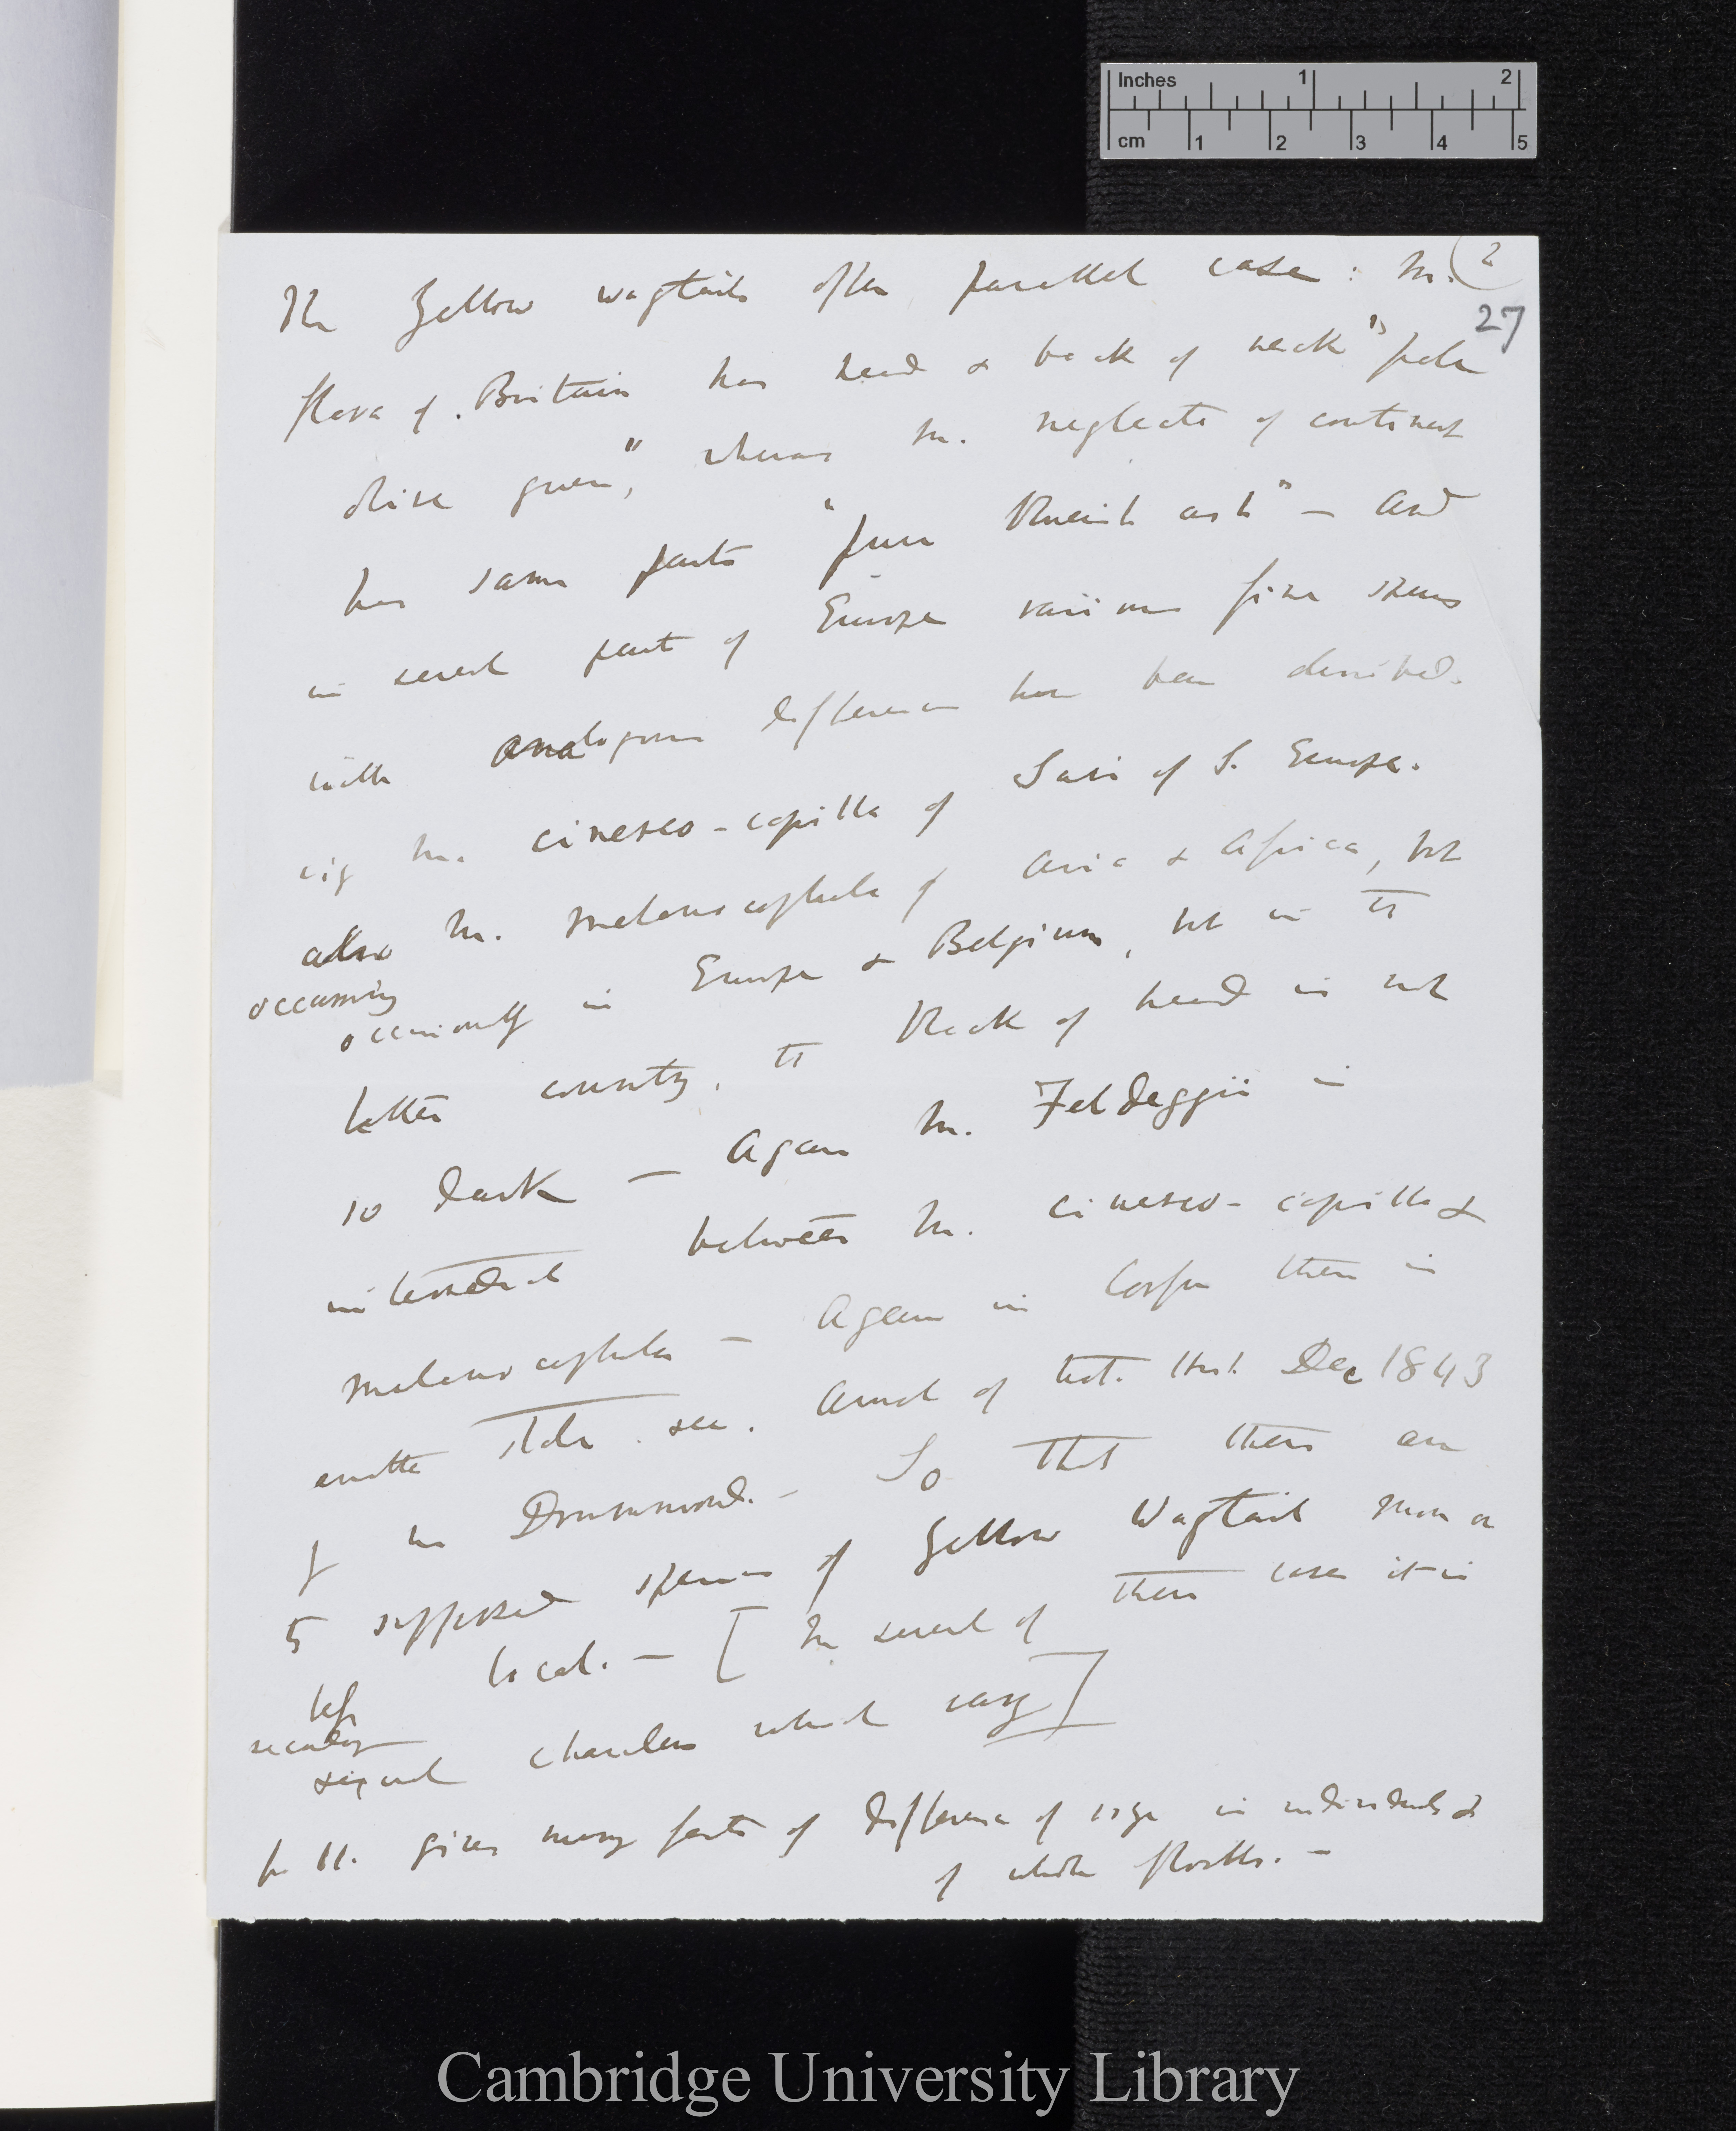 Inches 1 2
cm 1 2 3 4 5
(2
27
The Yellow wagtails offer parallel case: M.
flava of Britain has head & back of neck "pale
olive green", whereas M. neglecta of continent
has same parts "pure blueish ash" — and
in several part of Europe various fine
with analogous difference have been described.
viz M. cinereo-capilla of of S. Europe.
also M. melanocephala of Asia & Africa, but
occurring
occasionally in Europe & Belgium, but in the
latter country, the black of head is not
so dark — Again M. Feldeggii is
intermediate between M. cinereo-capilla &
melanocephala — Again in Corfu there is
another see. Annals of Nat. Hist. Dec 1843
by Mr Drummond. — So that there are
5 supposed species of Yellow Wagtail more or
less local. — [In several of these cases it is
secondary
sexual characters which vary]
Mr B. gives many facts of difference of size in individuals &
of whole flocks. —
Cambridge University Library